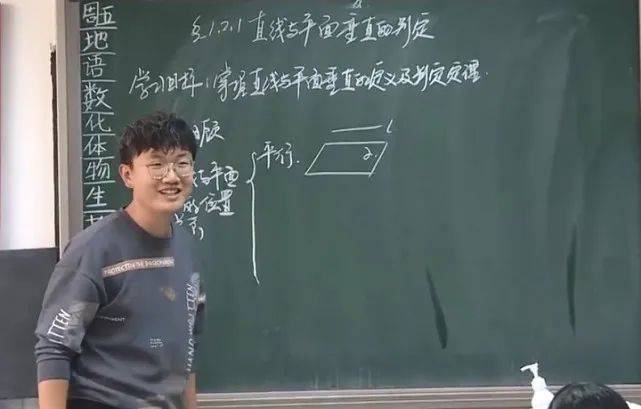 周五
地
语
数
化
体
物
生
§1.2.1 直线与平面垂直的判定
学习目标：掌握直线与平面垂直的定义及判定定理.
顾
与平面
的位置
平行.
l
α
PROTECTION IN THE